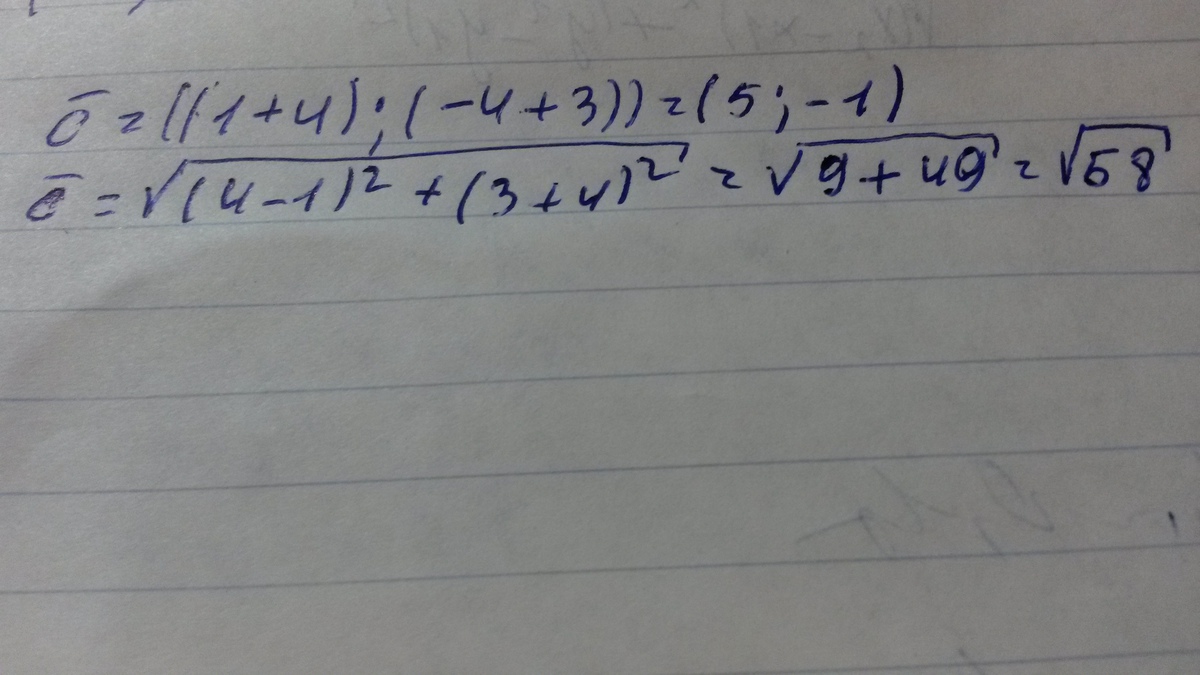 c̄ = ((1+4);(-4+3))=(5;-1)
c̄ = √((4-1)²+(3+4)²) = √(9+49) = √58